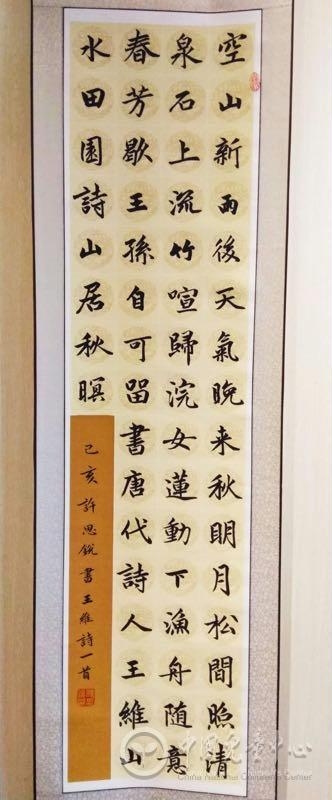 空山新雨後天氣晚来秋明月松間照清
泉石上流竹喧歸浣女蓮動下漁舟随意
春芳歇王孫自可留書唐代詩人王維山
水田園詩山居秋暝
己亥許思銳書王維詩一首
中国儿童中心
China National Children's Center